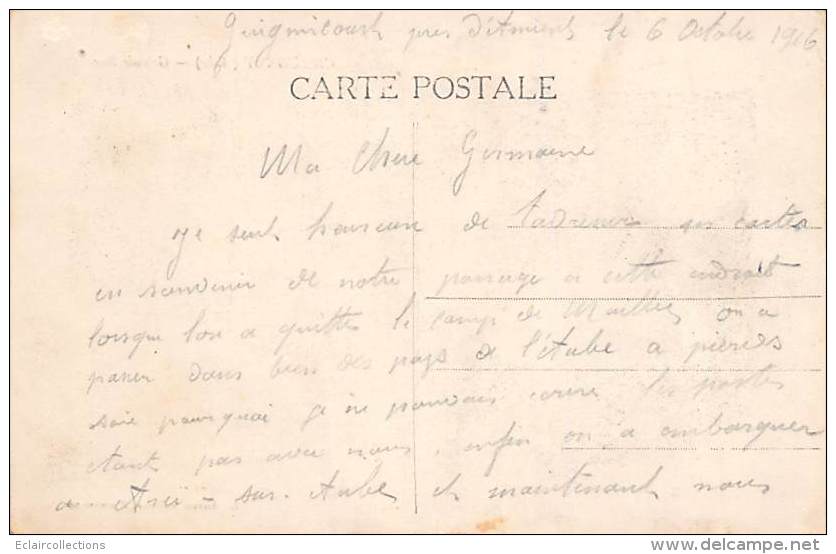 près d'Amiens le 6 Octobre 1916
CARTE POSTALE
Ma Chere Germaine
je suit heureux de t'adresser ses cartes
en souvenir de notre passage a cette endroit
lorsque l'on a quitter le camp de Mailly on a
passer dans bien des pays de l'Aube a pieds
pourquoi je ne pouvais écrire les postes
etant pas avec nous, enfin on a embarquer
a Arci-sur-Aube et maintenant nous
Eclaircollections
www.delcampe.net